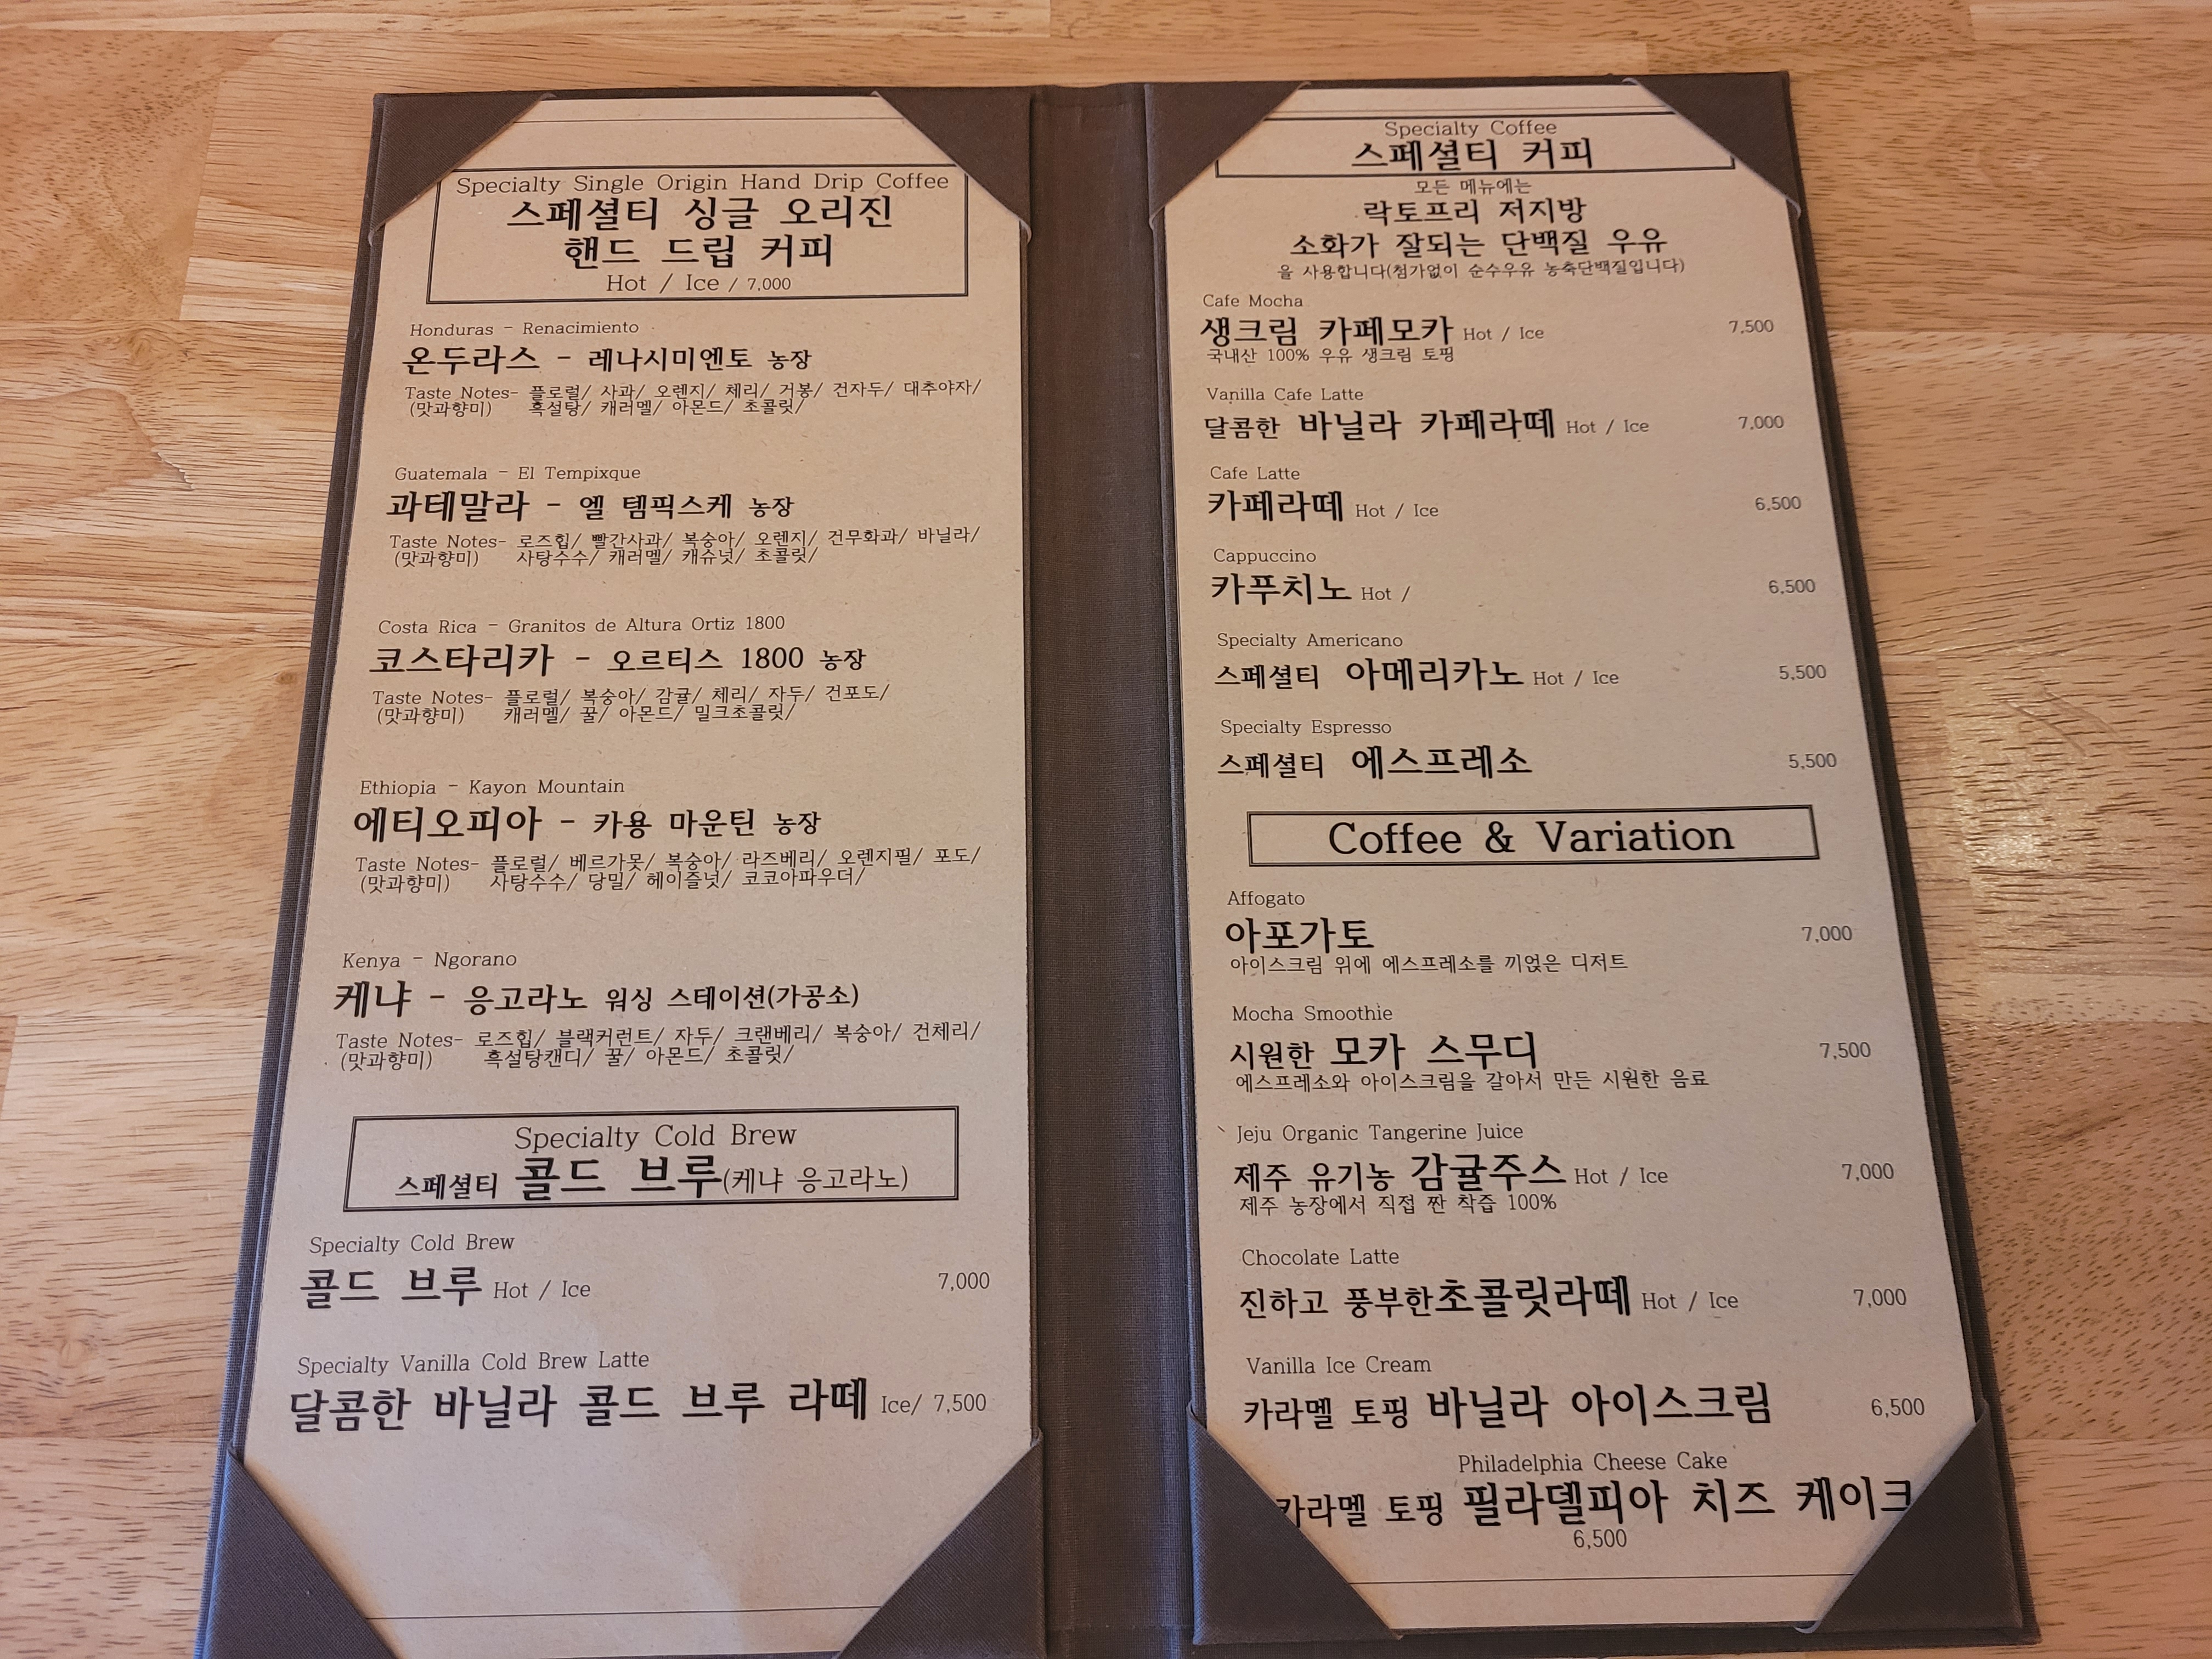 Specialty Single Origin Hand Drip Coffee
스페셜티 싱글 오리진
핸드 드립 커피
Hot / Ice / 7,000
Honduras - Renacimiento
온두라스 - 레나시미엔토 농장
Taste Notes- 플로럴/ 사과/ 오렌지/ 체리/ 거봉/ 건자두/ 대추야자/
(맛과향미) 흑설탕/ 캐러멜/ 아몬드/ 초콜릿/
Guatemala - El Tempixque
과테말라 - 엘 템픽스케 농장
Taste Notes- 로즈힙/ 빨간사과/ 복숭아/ 오렌지/ 건무화과/ 바닐라/
(맛과향미) 사탕수수/ 캐러멜/ 캐슈넛/ 초콜릿/
Costa Rica - Granitos de Altura Ortiz 1800
코스타리카 - 오르티스 1800 농장
Taste Notes- 플로럴/ 복숭아/ 감귤/ 체리/ 자두/ 건포도/
(맛과향미) 캐러멜/ 꿀/ 아몬드/ 밀크초콜릿/
Ethiopia - Kayon Mountain
에티오피아 - 카용 마운틴 농장
Taste Notes- 플로럴/ 베르가못/ 복숭아/ 라즈베리/ 오렌지필/ 포도/
(맛과향미) 사탕수수/ 당밀/ 헤이즐넛/ 코코아파우더/
Kenya - Ngorano
케냐 - 응고라노 워싱 스테이션(가공소)
Taste Notes- 로즈힙/ 블랙커런트/ 자두/ 크랜베리/ 복숭아/ 건체리/
(맛과향미) 흑설탕캔디/ 꿀/ 아몬드/ 초콜릿/
Specialty Cold Brew
스페셜티 콜드 브루(케냐 응고라노)
Specialty Cold Brew
콜드 브루 Hot / Ice 7,000
Specialty Vanilla Cold Brew Latte
달콤한 바닐라 콜드 브루 라떼 Ice/ 7,500
Specialty Coffee
스페셜티 커피
모든 메뉴에는
락토프리 저지방
소화가 잘되는 단백질 우유
을 사용합니다(첨가없이 순수우유 농축단백질입니다)
Cafe Mocha
생크림 카페모카 Hot / Ice 7,500
국내산 100% 우유 생크림 토핑
Vanilla Cafe Latte
달콤한 바닐라 카페라떼 Hot / Ice 7,000
Cafe Latte
카페라떼 Hot / Ice 6,500
Cappuccino
카푸치노 Hot / 6,500
Specialty Americano
스페셜티 아메리카노 Hot / Ice 5,500
Specialty Espresso
스페셜티 에스프레소 5,500
Coffee & Variation
Affogato
아포가토 7,000
아이스크림 위에 에스프레소를 끼얹은 디저트
Mocha Smoothie
시원한 모카 스무디 7,500
에스프레소와 아이스크림을 갈아서 만든 시원한 음료
Jeju Organic Tangerine Juice
제주 유기농 감귤주스 Hot / Ice 7,000
제주 농장에서 직접 짠 착즙 100%
Chocolate Latte
진하고 풍부한초콜릿라떼 Hot / Ice 7,000
Vanilla Ice Cream
카라멜 토핑 바닐라 아이스크림 6,500
Philadelphia Cheese Cake
카라멜 토핑 필라델피아 치즈 케이크
6,500